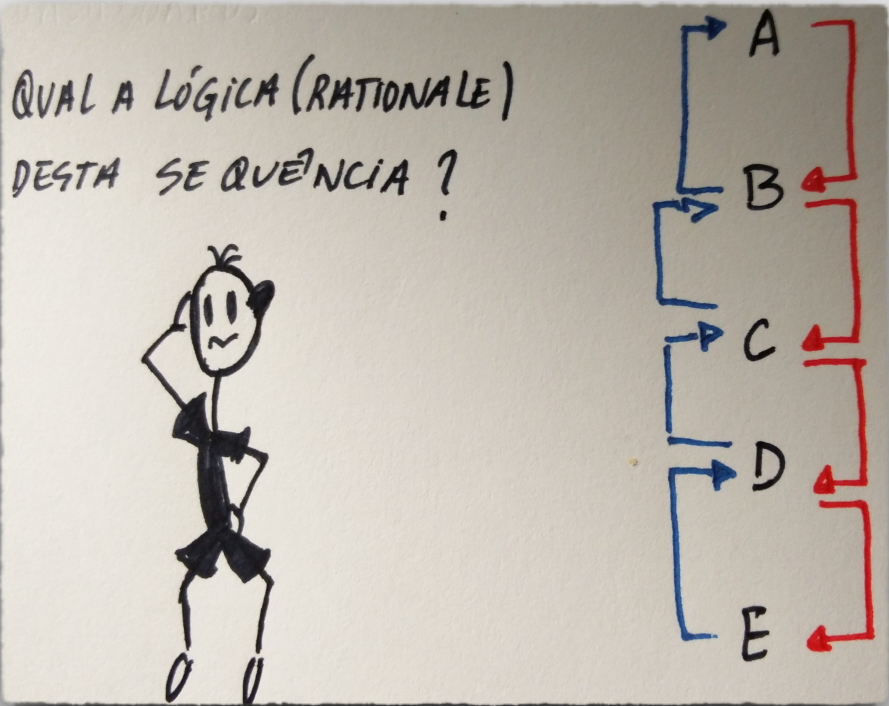 QUAL A LÓGiCA (RATIONALE)
DESTA SEQUÊNCiA ?
A
B
C
D
E